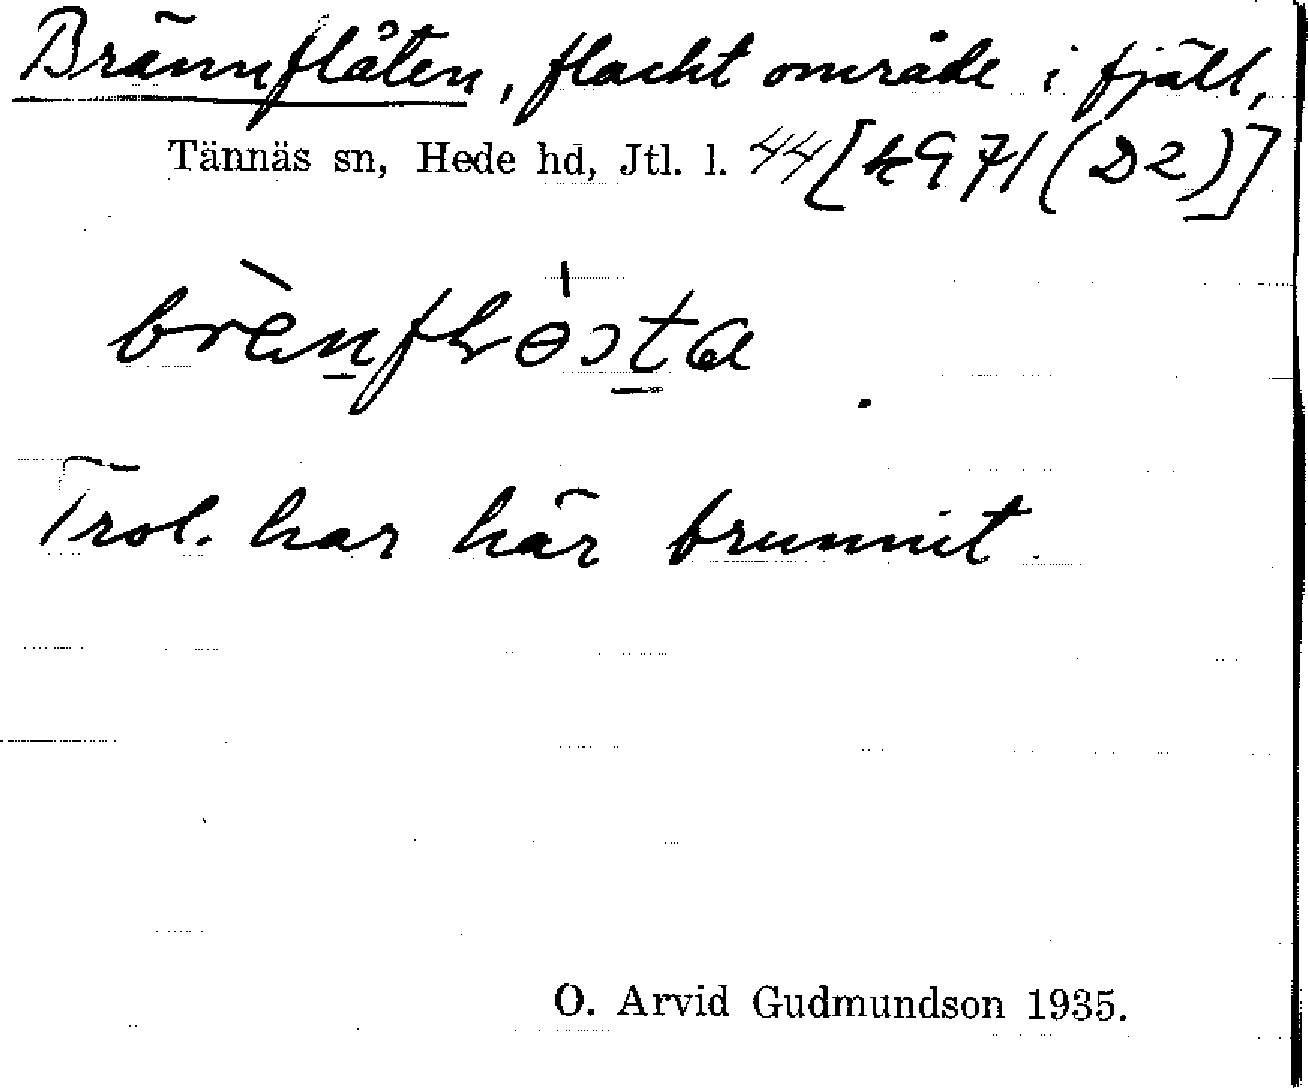 Brännflåten, flackt område i fjäll,
Tännäs sn, Hede hd, Jtl. l. 44 [kG 71 (D2)]
Trol. har här brunnit
O. Arvid Gudmundson 1935.